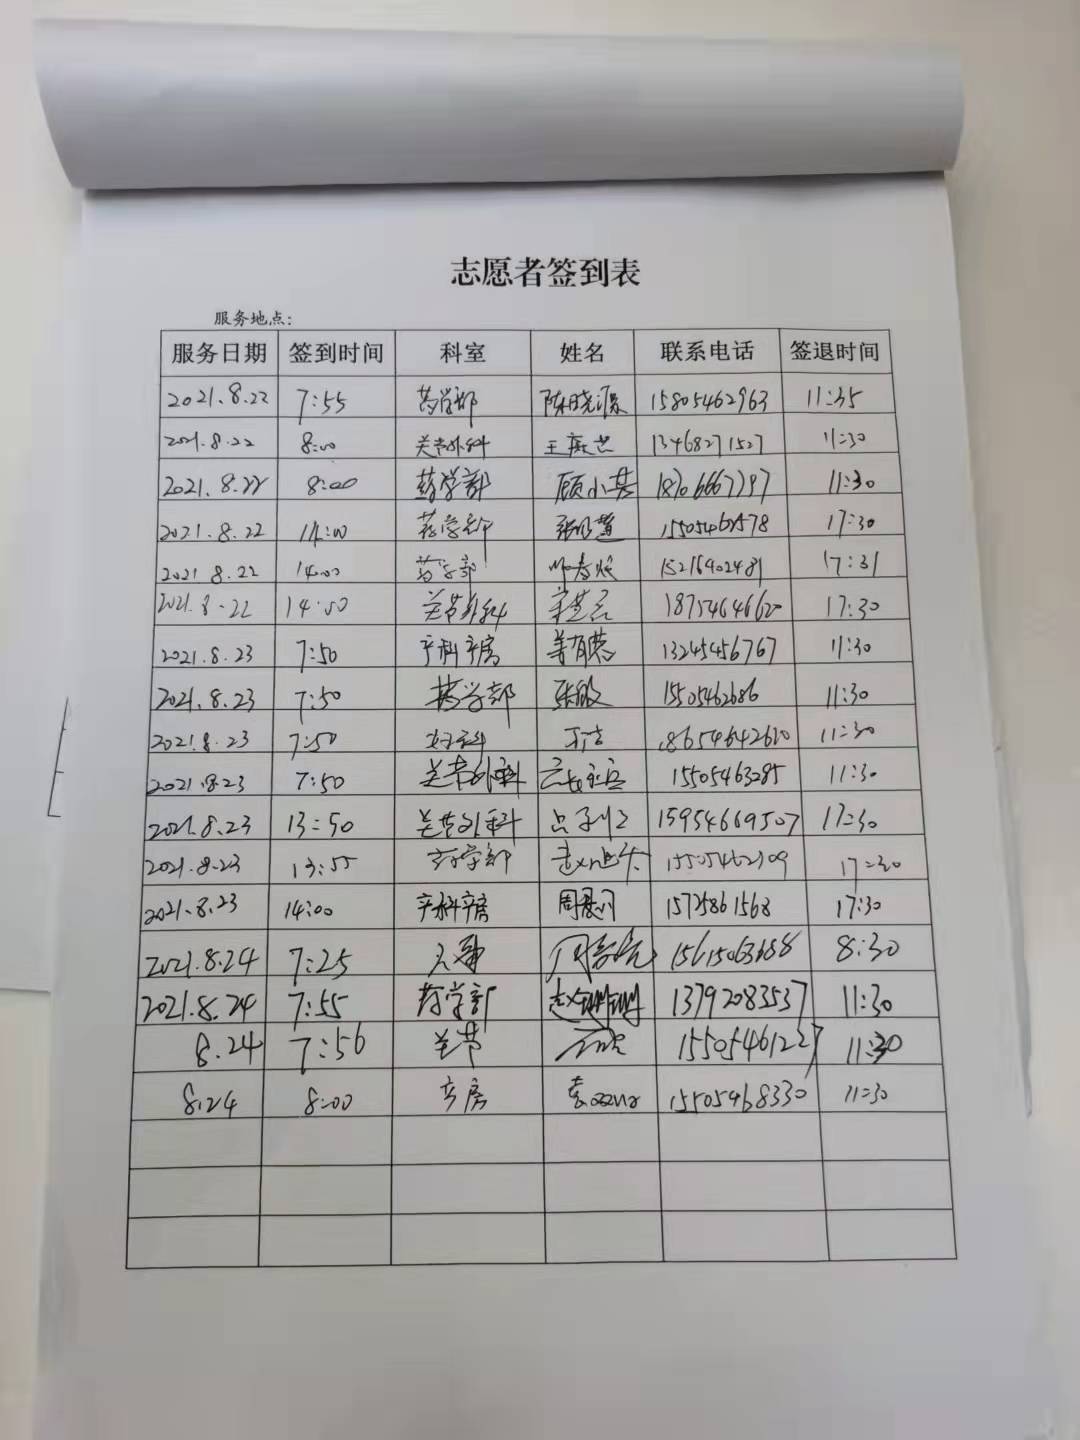 志愿者签到表
服务地点:
服务日期 签到时间 科室 姓名 联系电话 签退时间
2021.8.22 7:55 药学部 陈晓源 15805462963 11:35
2021.8.22 8:00 关节外科 13468271527 11:30
2021.8.22 8:00 药学部 顾小其 18706667797 11:30
2021.8.22 14:00 药学部 17:30
2021.8.22 14:00 药学部 15216902481 17:31
2021.8.22 14:00 关节外科 18754646620 17:30
2021.8.23 7:50 产科产房 13245456767 11:30
2021.8.23 7:50 药学部 张敏 15505462686 11:30
2021.8.23 7:50 18654642620 11:30
2021.8.23 7:50 关节外科 15505463085 11:30
2021.8.23 13:50 关节外科 15954669507 17:30
2021.8.23 13:55 药学部 17:30
2021.8.23 14:00 产科产房 15725861568 17:30
2021.8.24 7:25 15615063688 8:30
2021.8.24 7:55 药学部 赵姗姗 13792083537 11:30
8.24 7:56 关节 15505461227 11:30
8.24 8:00 产房 15505468330 11:30